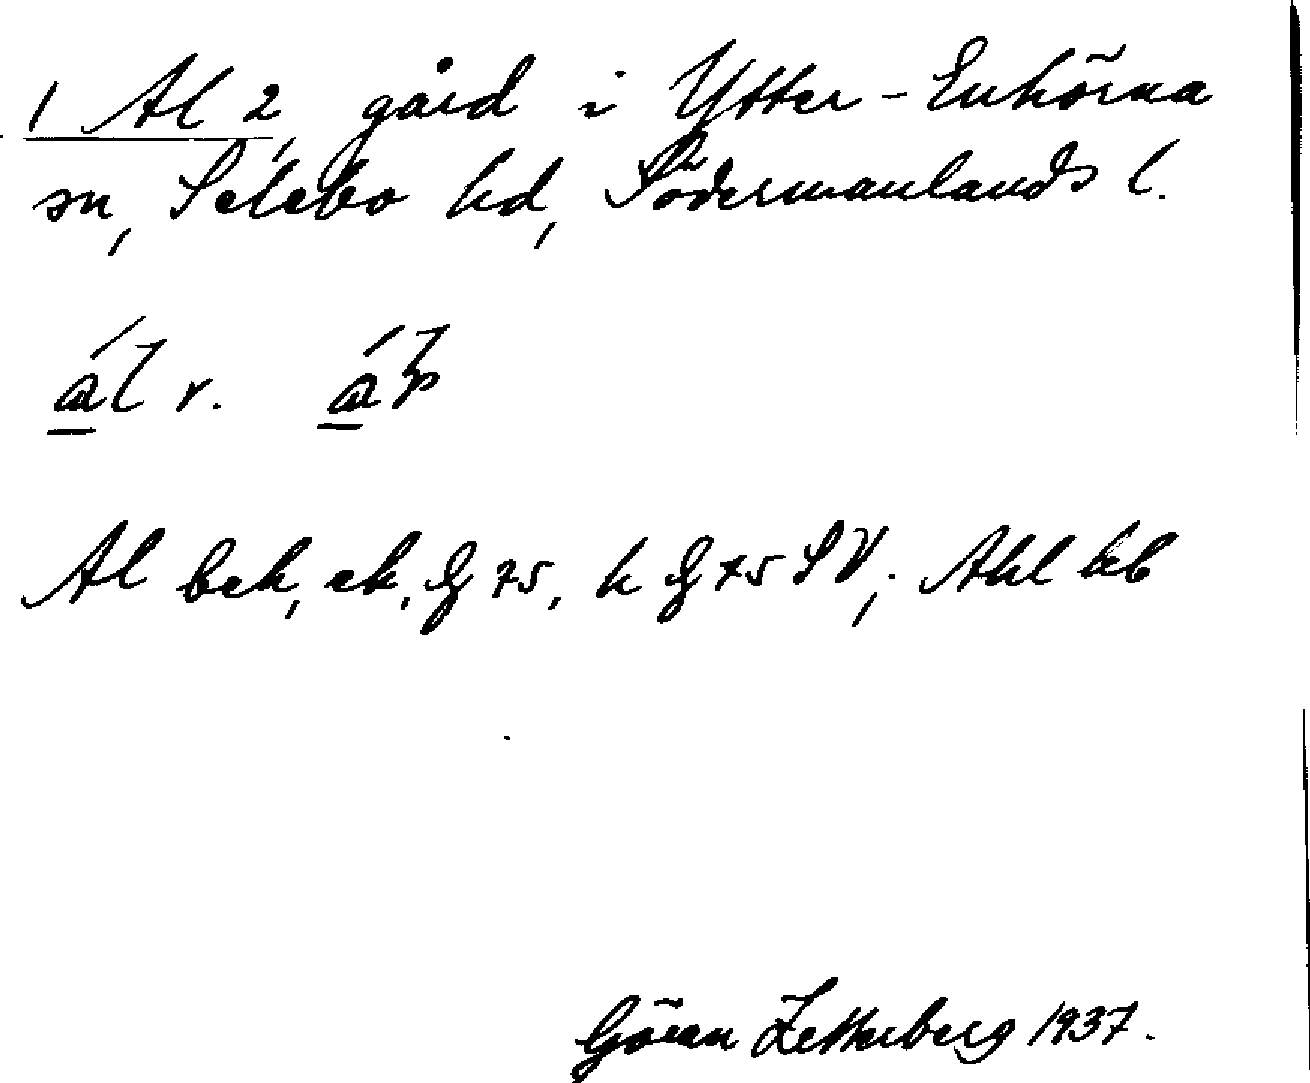 1 Al 2, gård i Ytter-Enhörna
sn, Selebo hd, Södermanlands l.
Al bek, ek, G 75, k G 75 SV; Ahl kb
Göran Zetterberg 1937.